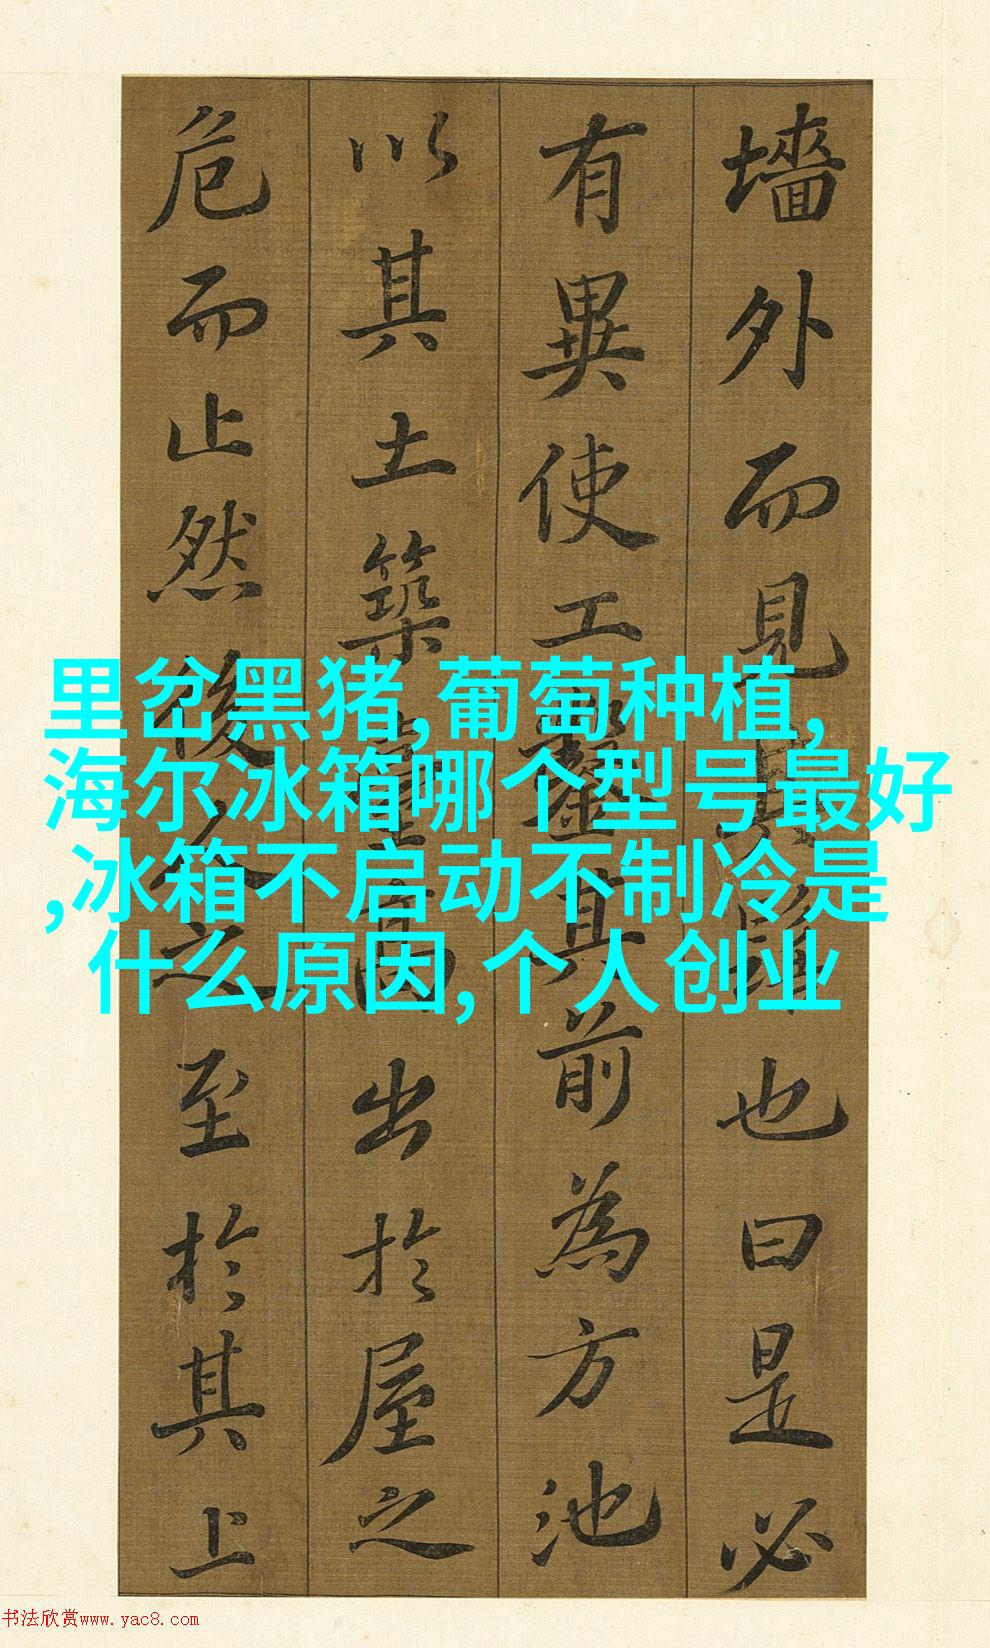 墻外而見其髻也曰是必
有異使工鑿其前為方池
以其土築臺高出於屋之
危而止然後人之至於其上
里岔黑猪,葡萄种植,
海尔冰箱哪个型号最好
,冰箱不启动不制冷是
什么原因,个人创业
书法欣赏www.yac8.com